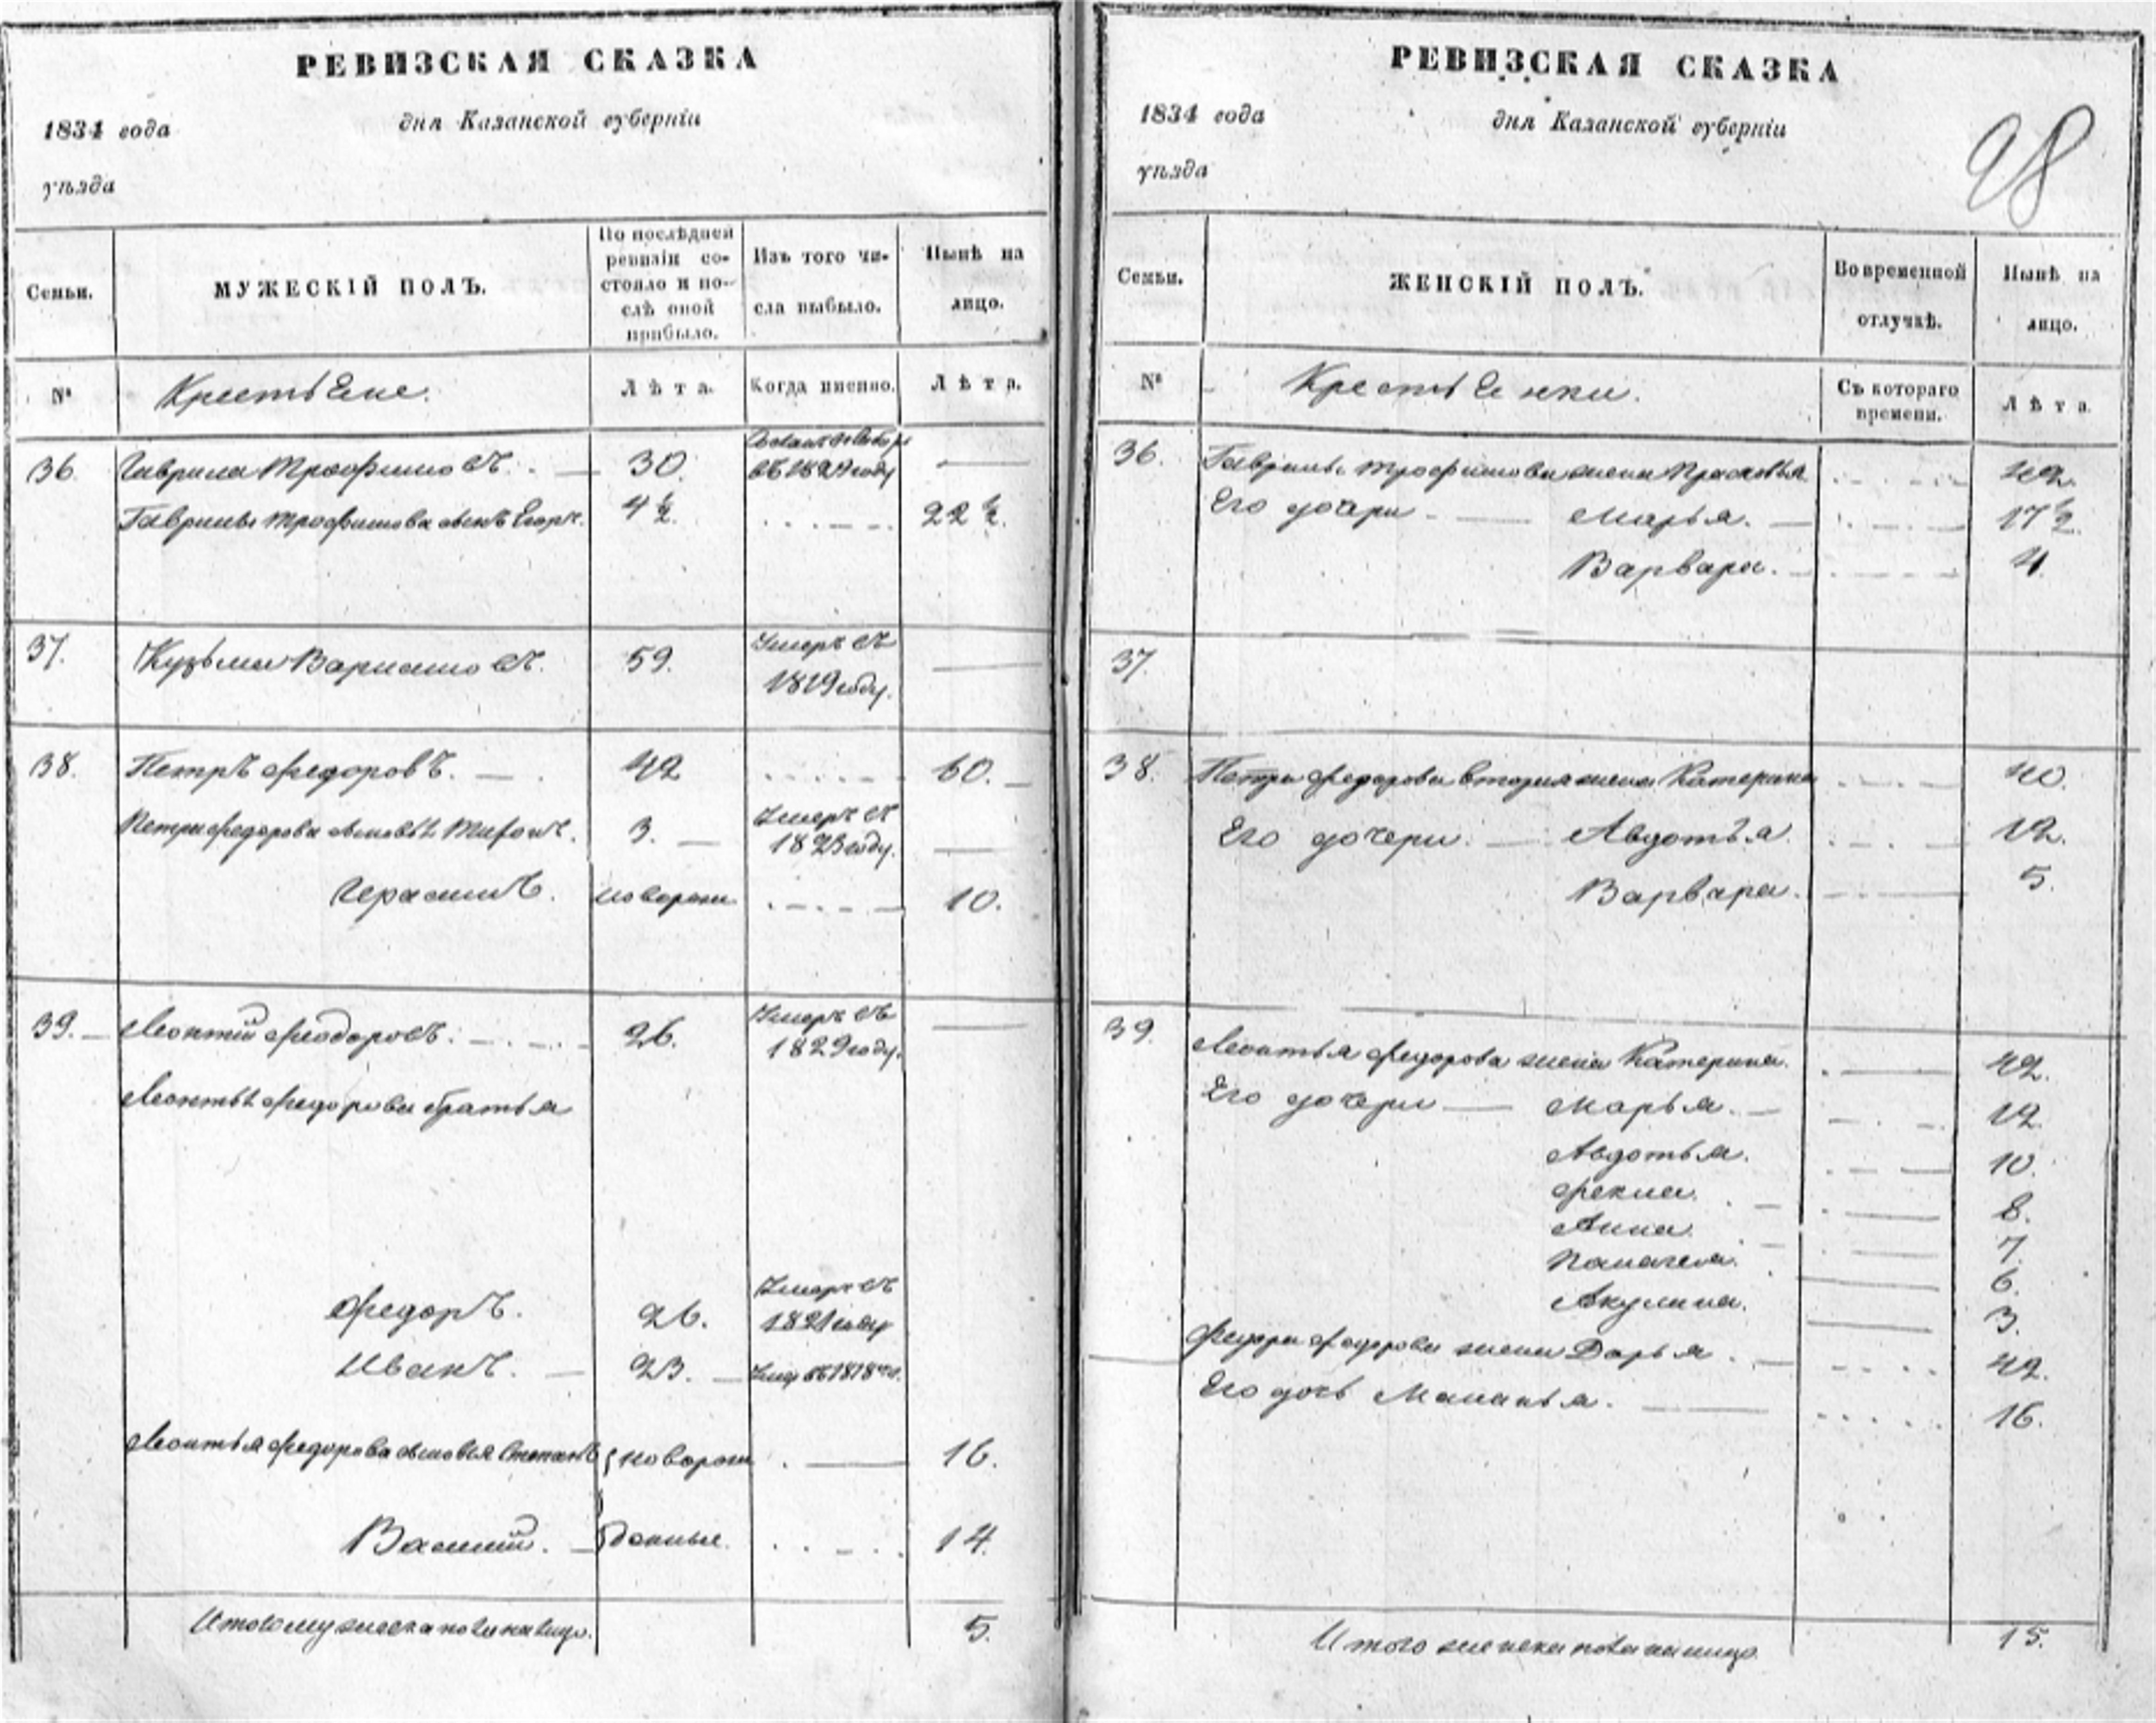 РЕВИЗСКАЯ СКАЗКА
1834 года
дня Казанской губерніи
уѣзда
Семьи.
МУЖЕСКІЙ ПОЛЪ.
По послѣдней
ревизіи со-
стояло и по-
слѣ оной
прибыло.
Изъ того чи-
сла выбыло.
Нынѣ на
лицо.
№
Крестьяне.
Лѣта.
Когда именно.
Лѣта.
36. Гаврила Трофимовъ. 30.
въ 1829 году
Гаврилы Трофимова сынъ Егоръ. 4 ½. 22 ½.
37. Кузьма 59. Умеръ въ
1819 году.
38. Петръ Федоровъ. 42 60.
Петра Федорова сыновья 3. Умеръ въ
1823 году.
Герасимъ. новорож 10.
39. Леонтій Феодоровъ. 26. Умеръ въ
1829 году.
Леонтья Федорова братья
Федоръ. 26. Умеръ въ
1821 году
Иванъ. 23. Умер въ 1818 го.
Леонтья Федорова сыновья Степанъ новорож 16.
Василій. денные. 14.
Итого мужеска пола на лицо. 5.
РЕВИЗСКАЯ СКАЗКА
1834 года
дня Казанской губерніи
уѣзда
98
Семьи.
ЖЕНСКІЙ ПОЛЪ.
Во временной
отлучкѣ.
Нынѣ на
лицо.
№
Крестьянки.
Съ котораго
времени.
Лѣта.
36. Гаврилы Трофимова жена Прасковья 42.
Его дочери Марья. 17 ½.
Варвара. 4.
37.
38. Петра Федорова вторая жена Катерина 40.
Его дочери Авдотья. 12.
Варвара. 5.
39. Леонтья Федорова жена Катерина. 42.
Его дочери Марья. 12.
Авдотья. 10.
Фекла. 8.
Анна. 7.
Палагея. 6.
Акулина. 3.
Федора Федорова жена Дарья. 42.
Его дочь Маланья. 16.
Итого женска пола на лицо 15.